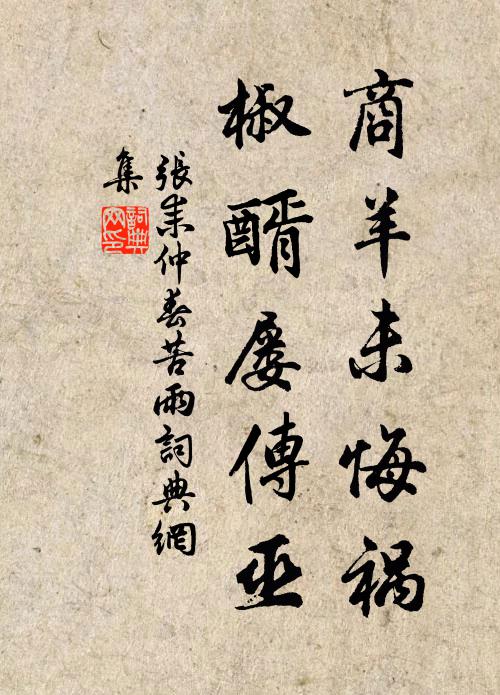 商羊未悔禍
椒醑屡傳巫
張耒仲春苦雨詞典網
集
詞典
网印